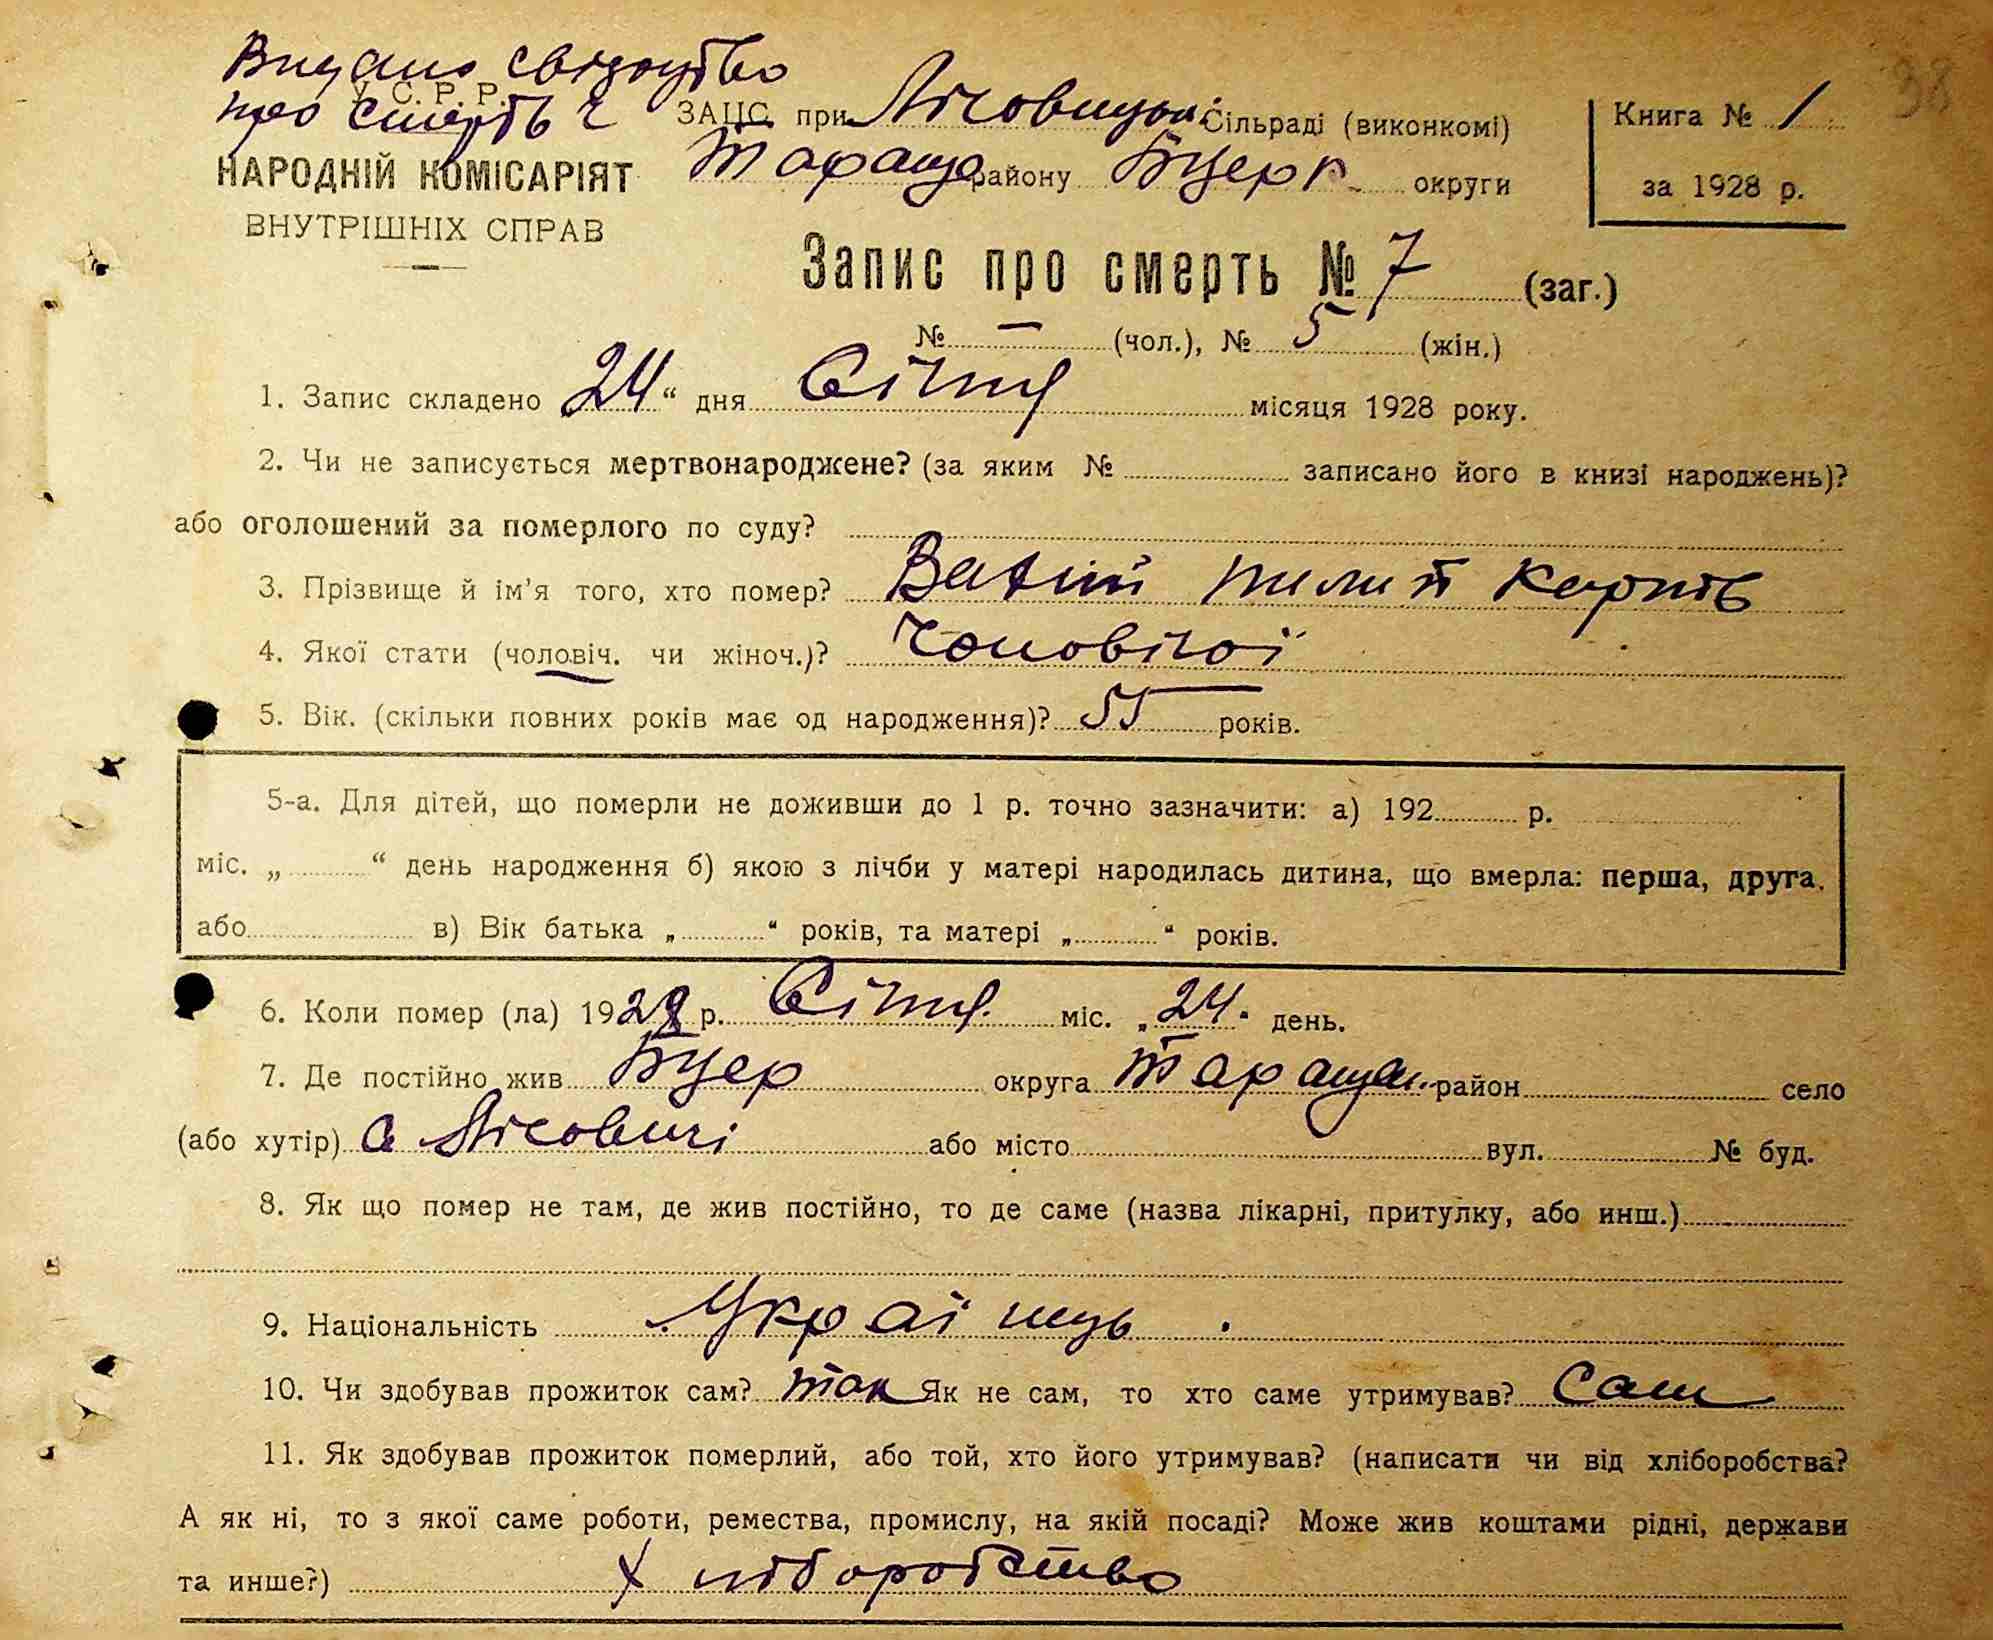 Видано свідоцтво
про смерть
У. С. Р. Р.
НАРОДНІЙ КОМІСАРІЯТ
ВНУТРІШНІХ СПРАВ
ЗАЦС при Лісовицькі Сільраді (виконкомі)
Тараща району БЦерк округи
Книга № 1
за 1928 р.
38
Запис про смерть № 7 (заг.)
№ — (чол.), № 5 (жін.)
1. Запис складено 24 “ дня Січня місяця 1928 року.
2. Чи не записується мертвонароджене? (за яким № записано його в книзі народжень)?
або оголошений за померлого по суду?
3. Прізвище й ім'я того, хто помер? Пилип Карпів
4. Якої стати (чоловіч. чи жіноч.)? Чоловічої
5. Вік. (скільки повних років має од народження)? 55 років.
5-а. Для дітей, що померли не доживши до 1 р. точно зазначити: а) 192 р.
міс. „ “ день народження б) якою з лічби у матері народилась дитина, що вмерла: перша, друга.
або в) Вік батька „ “ років, та матері „ “ років.
6. Коли помер (ла) 1928 р. Січня міс. „24“ день.
7. Де постійно жив БЦер округа Таращан район село
(або хутір) с Лісовичі або місто вул. № буд.
8. Як що помер не там, де жив постійно, то де саме (назва лікарні, притулку, або инш.)
9. Національність Українць
10. Чи здобував прожиток сам? так Як не сам, то хто саме утримував? Сам
11. Як здобував прожиток померлий, або той, хто його утримував? (написати чи від хліборобства?
А як ні, то з якої саме роботи, ремества, промислу, на якій посаді? Може жив коштами рідні, держави
та инше?) Хліборобство